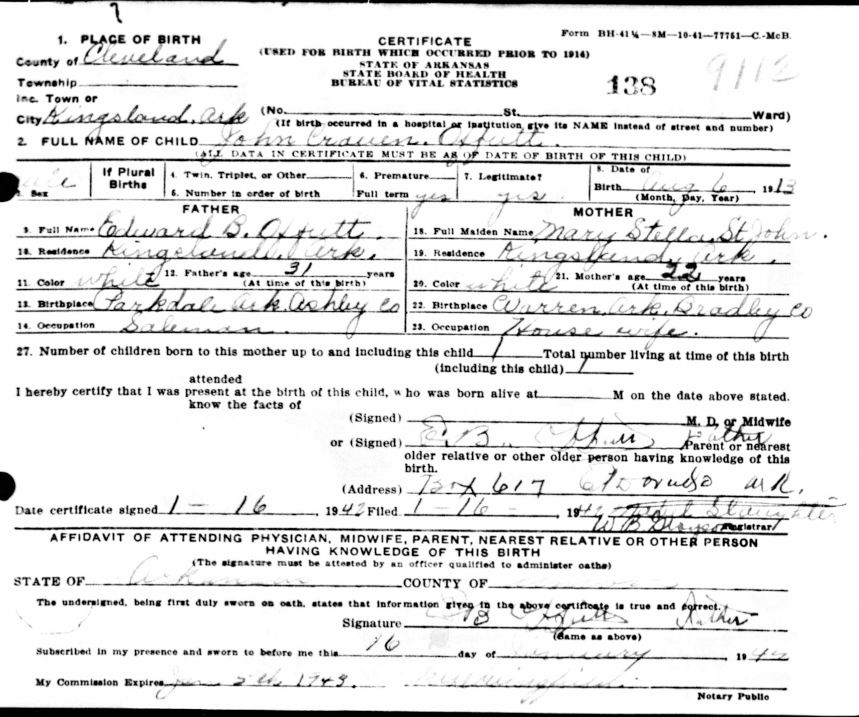 1. PLACE OF BIRTH
County of Cleveland
Township
Inc. Town or
City Kingsland, Ark
CERTIFICATE
(USED FOR BIRTH WHICH OCCURRED PRIOR TO 1914)
STATE OF ARKANSAS
STATE BOARD OF HEALTH
BUREAU OF VITAL STATISTICS
Form BH-41¼—8M—10-41—77751—C.-McB.
138
9112
(No. St. Ward)
(If birth occurred in a hospital or institution give its NAME instead of street and number)
2. FULL NAME OF CHILD John Craven Offutt.
(ALL DATA IN CERTIFICATE MUST BE AS OF DATE OF BIRTH OF THIS CHILD)
Sex
If Plural Births
4. Twin, Triplet, or Other
5. Number in order of birth
6. Premature
Full term yes
7. Legitimate?
yes
8. Date of
Birth Aug 6 1913
(Month, Day, Year)
FATHER
9. Full Name Edward B. Offutt.
10. Residence Kingsland, Ark.
11. Color white 12. Father's age 31 years
(At time of this birth)
13. Birthplace Parkdale Ark Ashley Co
14. Occupation Saleman.
MOTHER
18. Full Maiden Name Mary Stella St John.
19. Residence Kingsland, Ark.
20. Color white 21. Mother's age 22 years
(At time of this birth)
22. Birthplace Warren, Ark. Bradley Co
23. Occupation House wife.
27. Number of children born to this mother up to and including this child 1 Total number living at time of this birth
(including this child) 1
attended
I hereby certify that I was present at the birth of this child, who was born alive at M on the date above stated.
know the facts of
(Signed) M. D. or Midwife
or (Signed) E. B. Offutt Father Parent or nearest
older relative or other older person having knowledge of this
birth.
(Address) Box 617 El Dorado Ark.
Date certificate signed 1-16 1942 Filed 1-16- 1942
Registrar
AFFIDAVIT OF ATTENDING PHYSICIAN, MIDWIFE, PARENT, NEAREST RELATIVE OR OTHER PERSON
HAVING KNOWLEDGE OF THIS BIRTH
(The signature must be attested by an officer qualified to administer oaths)
STATE OF Arkansas COUNTY OF
The undersigned, being first duly sworn on oath, states that information given in the above certificate is true and correct.
Signature E B Offutt Father
(Same as above)
Subscribed in my presence and sworn to before me this 16 day of January 1942
My Commission Expires
Notary Public